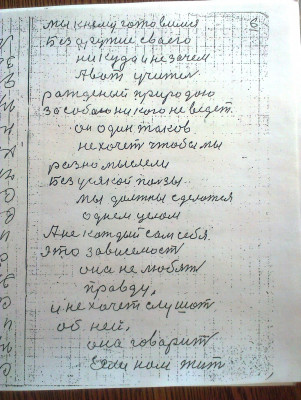 6
мы к нему готовимся
Без другие сваего
ни куда и не зачем
А вот учител
ражденый природою
За собою никого не ведет.
он один таков
не хочет чтобы мы
разно мыслели
Без усякой ползы
мы должны сделатся
однем целом
А не каждый сам себя.
это зависемост
она не любят
правду,
и не хочет слушат
об ней,
она говарит
Если ком жит